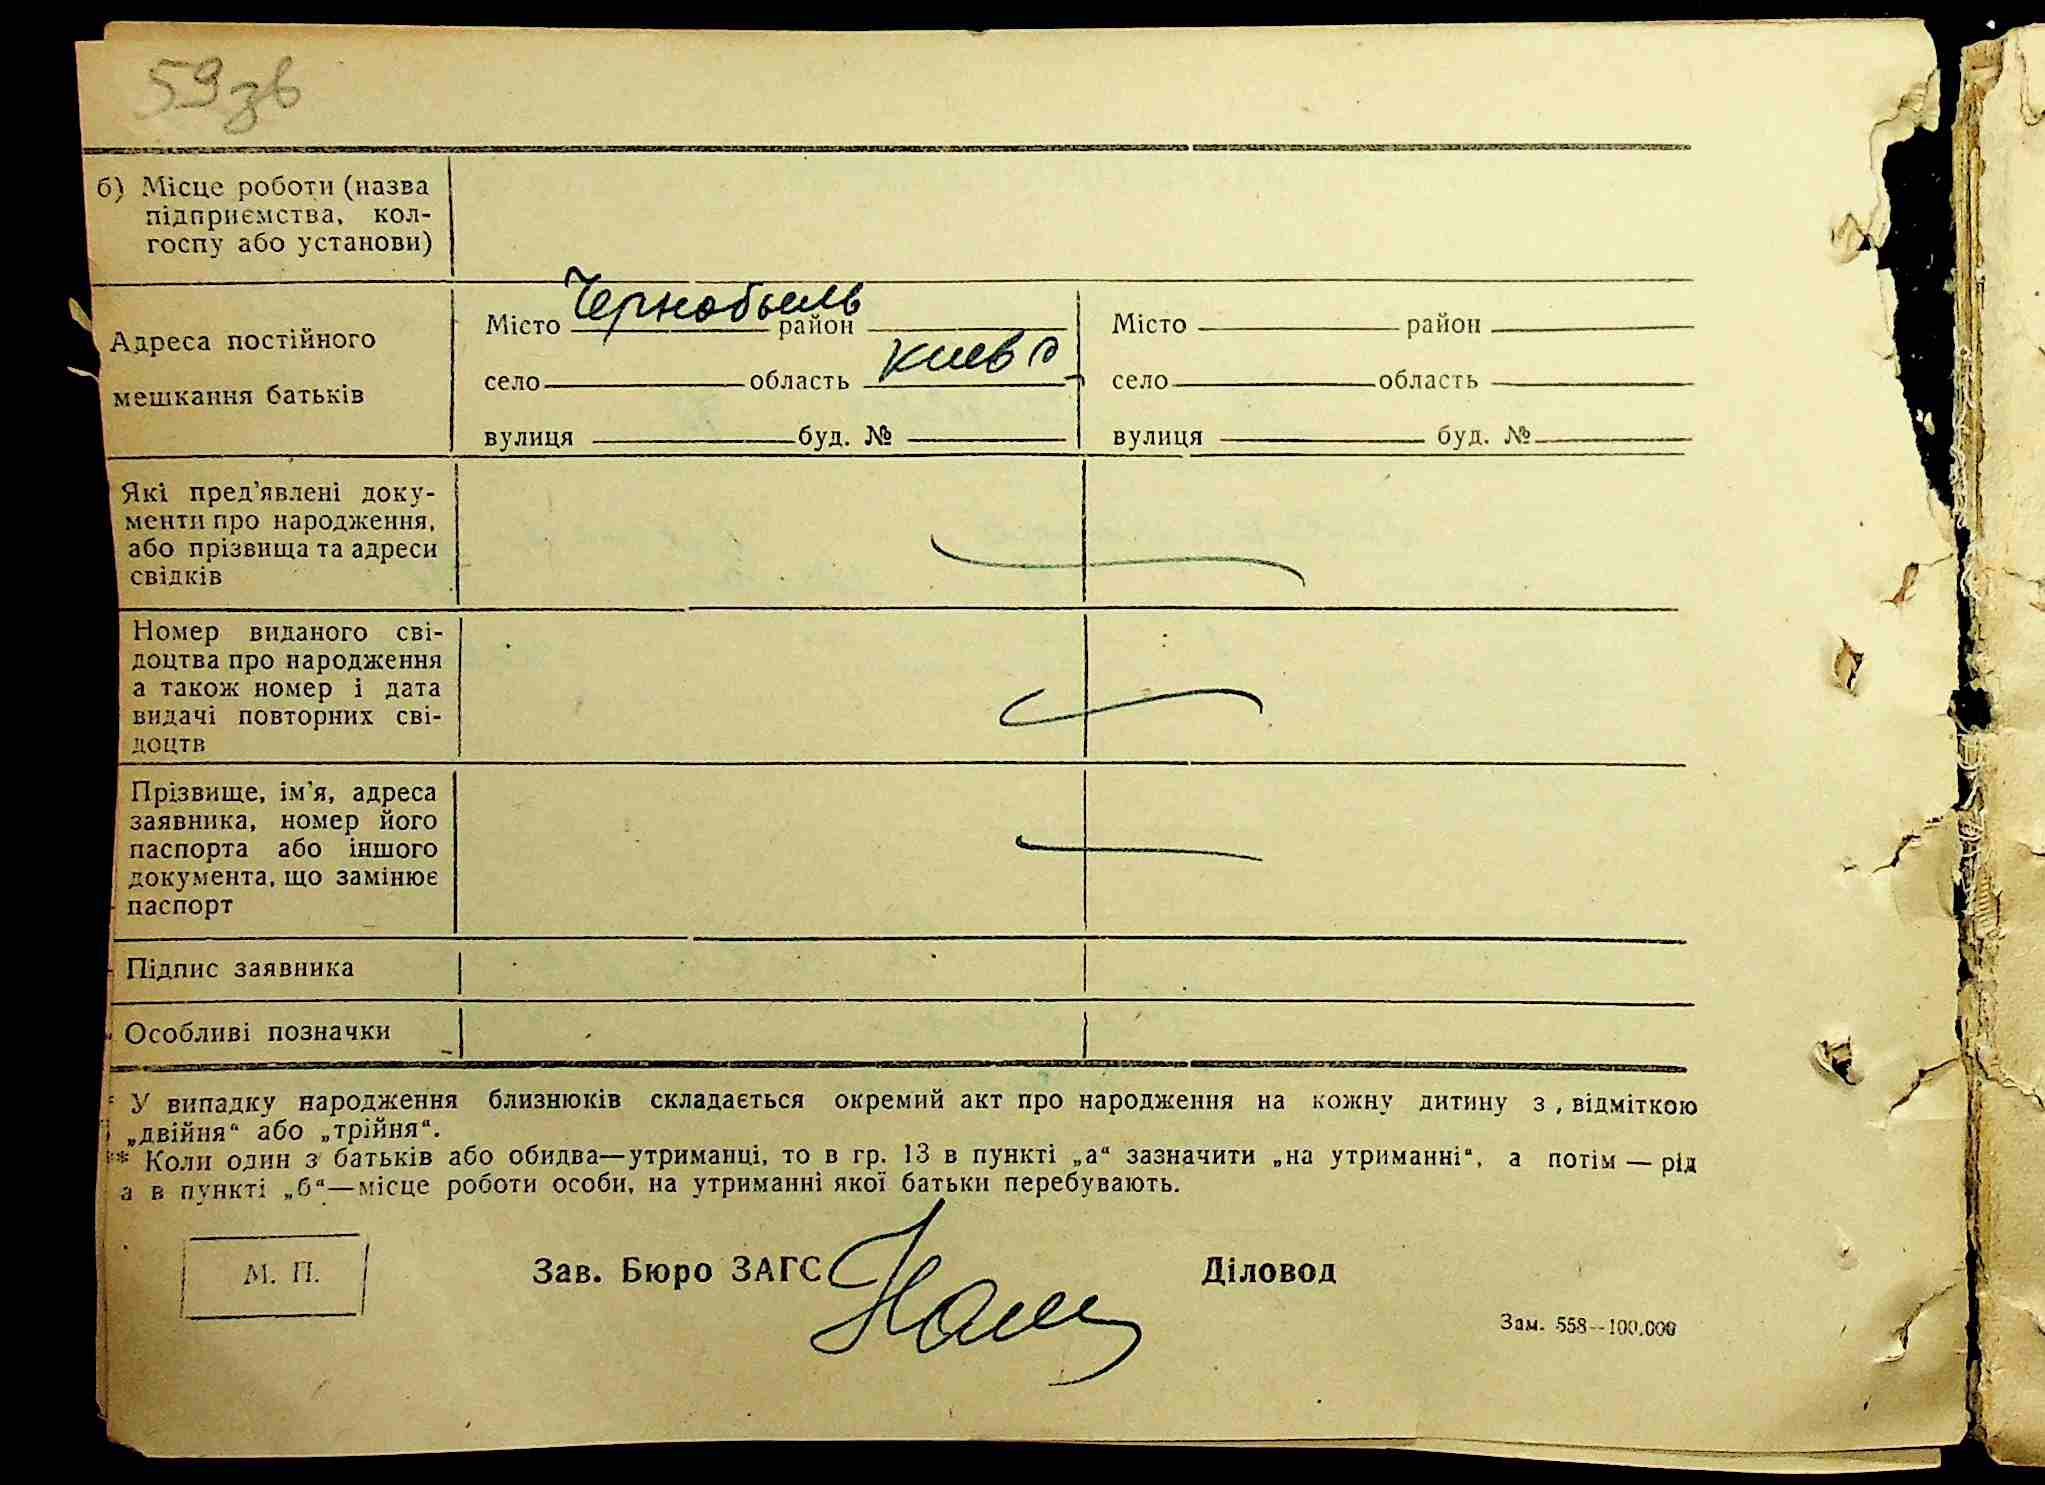 59 зв
б) Місце роботи (назва
підприємства, кол-
госпу або установи)
Адреса постійного
мешкання батьків
Місто Чернобыль район
село область Киев
вулиця буд. №
Місто район
село область
вулиця буд. №
Які пред'явлені доку-
менти про народження,
або прізвища та адреси
свідків
Номер виданого сві-
доцтва про народження
а також номер і дата
видачі повторних сві-
доцтв
Прізвище, ім'я, адреса
заявника, номер його
паспорта або іншого
документа, що замінює
паспорт
Підпис заявника
Особливі позначки
* У випадку народження близнюків складається окремий акт про народження на кожну дитину з відміткою
„двійня“ або „трійня“.
** Коли один з батьків або обидва—утриманці, то в гр. 13 в пункті „а“ зазначити „на утриманні“, а потім — рід
а в пункті „б“—місце роботи особи, на утриманні якої батьки перебувають.
М. П.
Зав. Бюро ЗАГС
Діловод
Зам. 558—100.000